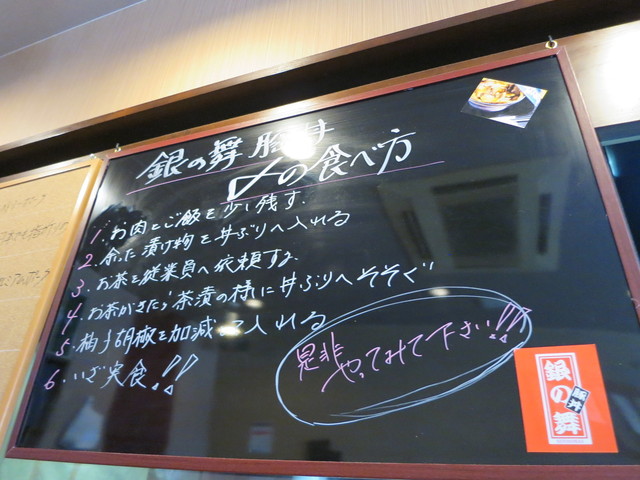 銀の舞 豚丼
〆の食べ方
1. お肉とご飯を少し残す.
2. 余った漬け物を丼ぶりへ入れる
3. お茶を従業員へ依頼する.
4. お茶がきたら茶漬の様に丼ぶりへそそぐ
5. 柚子胡椒を加減って入れる
6. いざ実食!!
是非
やってみて下さい!!
銀の舞
豚丼